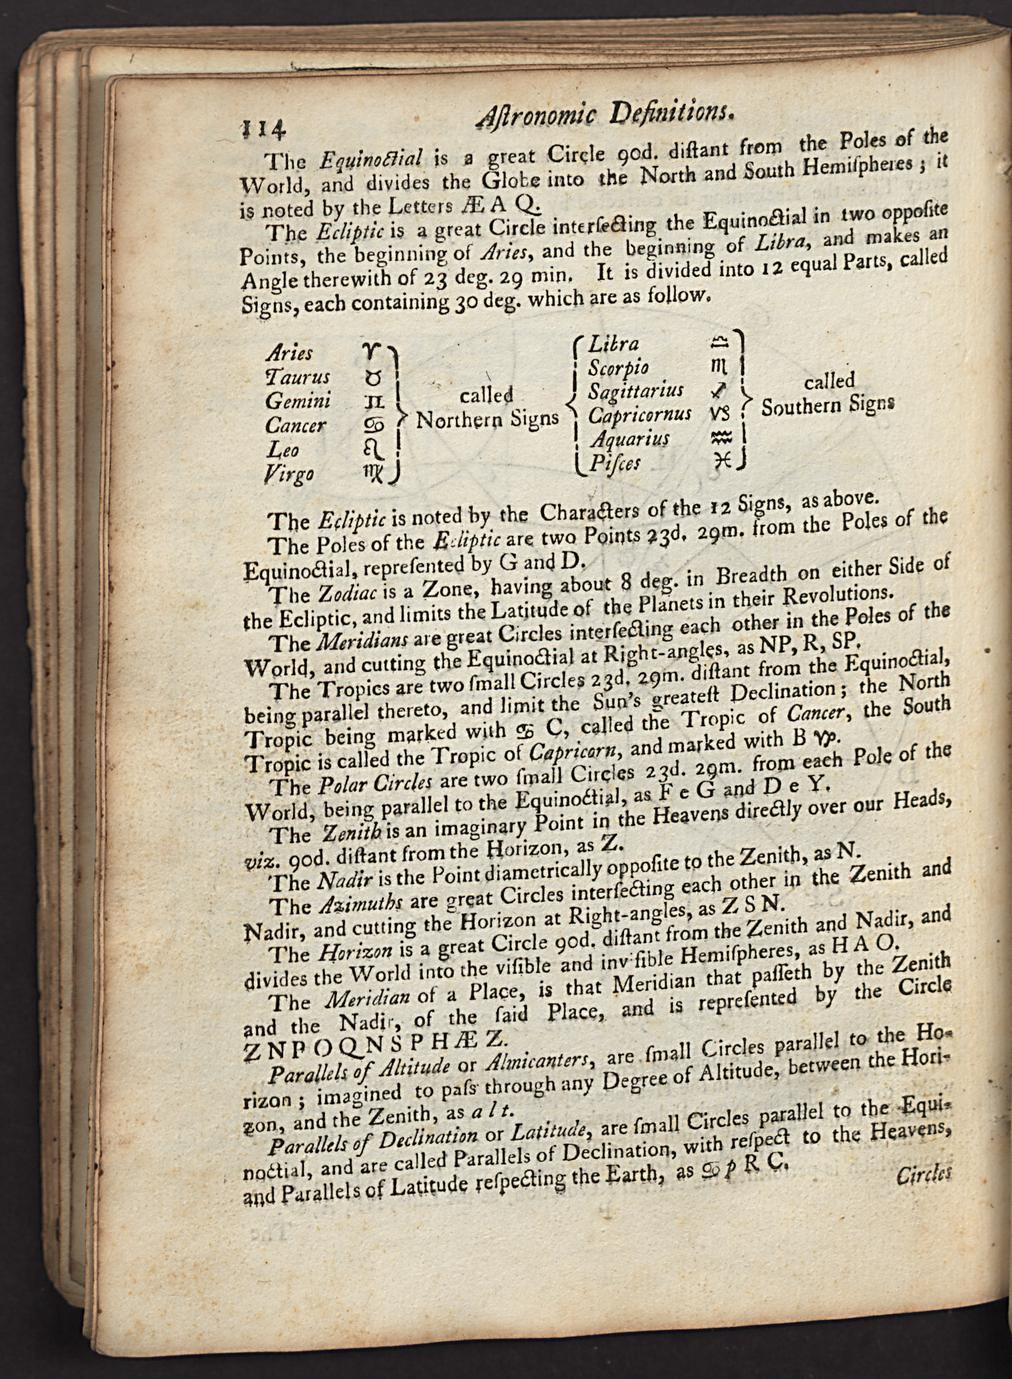 114 Aſtronomic Definitions.
The Equinoctial is a great Circle 90d. diſtant from the Poles of the
World, and divides the Globe into the North and South Hemiſpheres; it
is noted by the Letters Æ A Q.
The Ecliptic is a great Circle interſecting the Equinoctial in two oppoſite
Points, the beginning of Aries, and the beginning of Libra, and makes an
Angle therewith of 23 deg. 29 min. It is divided into 12 equal Parts, called
Signs, each containing 30 deg. which are as follow.
Aries ♈ Libra ♎
Taurus ♉ Scorpio ♏
Gemini ♊ called Sagittarius ♐ called
Cancer ♋ Northern Signs Capricornus ♑ Southern Signs
Leo ♌ Aquarius ♒
Virgo ♍ Piſces ♓
The Ecliptic is noted by the Characters of the 12 Signs, as above.
The Poles of the Ecliptic are two Points 23d. 29m. from the Poles of the
Equinoctial, repreſented by G and D.
The Zodiac is a Zone, having about 8 deg. in Breadth on either Side of
the Ecliptic, and limits the Latitude of the Planets in their Revolutions.
The Meridians are great Circles interſecting each other in the Poles of the
World, and cutting the Equinoctial at Right-angles, as NP, R, SP.
The Tropics are two ſmall Circles 23d. 29m. diſtant from the Equinoctial,
being parallel thereto, and limit the Sun's greateſt Declination; the North
Tropic being marked with ♋ C, called the Tropic of Cancer, the South
Tropic is called the Tropic of Capricorn, and marked with B ♑.
The Polar Circles are two ſmall Circles 23d. 29m. from each Pole of the
World, being parallel to the Equinoctial, as F e G and D e Y.
The Zenith is an imaginary Point in the Heavens directly over our Heads,
viz. 90d. diſtant from the Horizon, as Z.
The Nadir is the Point diametrically oppoſite to the Zenith, as N.
The Azimuths are great Circles interſecting each other in the Zenith and
Nadir, and cutting the Horizon at Right-angles, as Z S N.
The Horizon is a great Circle 90d. diſtant from the Zenith and Nadir, and
divides the World into the viſible and inviſible Hemiſpheres, as H A O.
The Meridian of a Place, is that Meridian that paſſeth by the Zenith
and the Nadir, of the ſaid Place, and is repreſented by the Circle
Z N P O Q N S P H Æ Z.
Parallels of Altitude or Almicanters, are ſmall Circles parallel to the Ho-
rizon; imagined to paſs through any Degree of Altitude, between the Hori-
zon, and the Zenith, as a l t.
Parallels of Declination or Latitude, are ſmall Circles parallel to the Equi-
noctial, and are called Parallels of Declination, with reſpect to the Heavens,
and Parallels of Latitude reſpecting the Earth, as ♋ p R C.
Circles